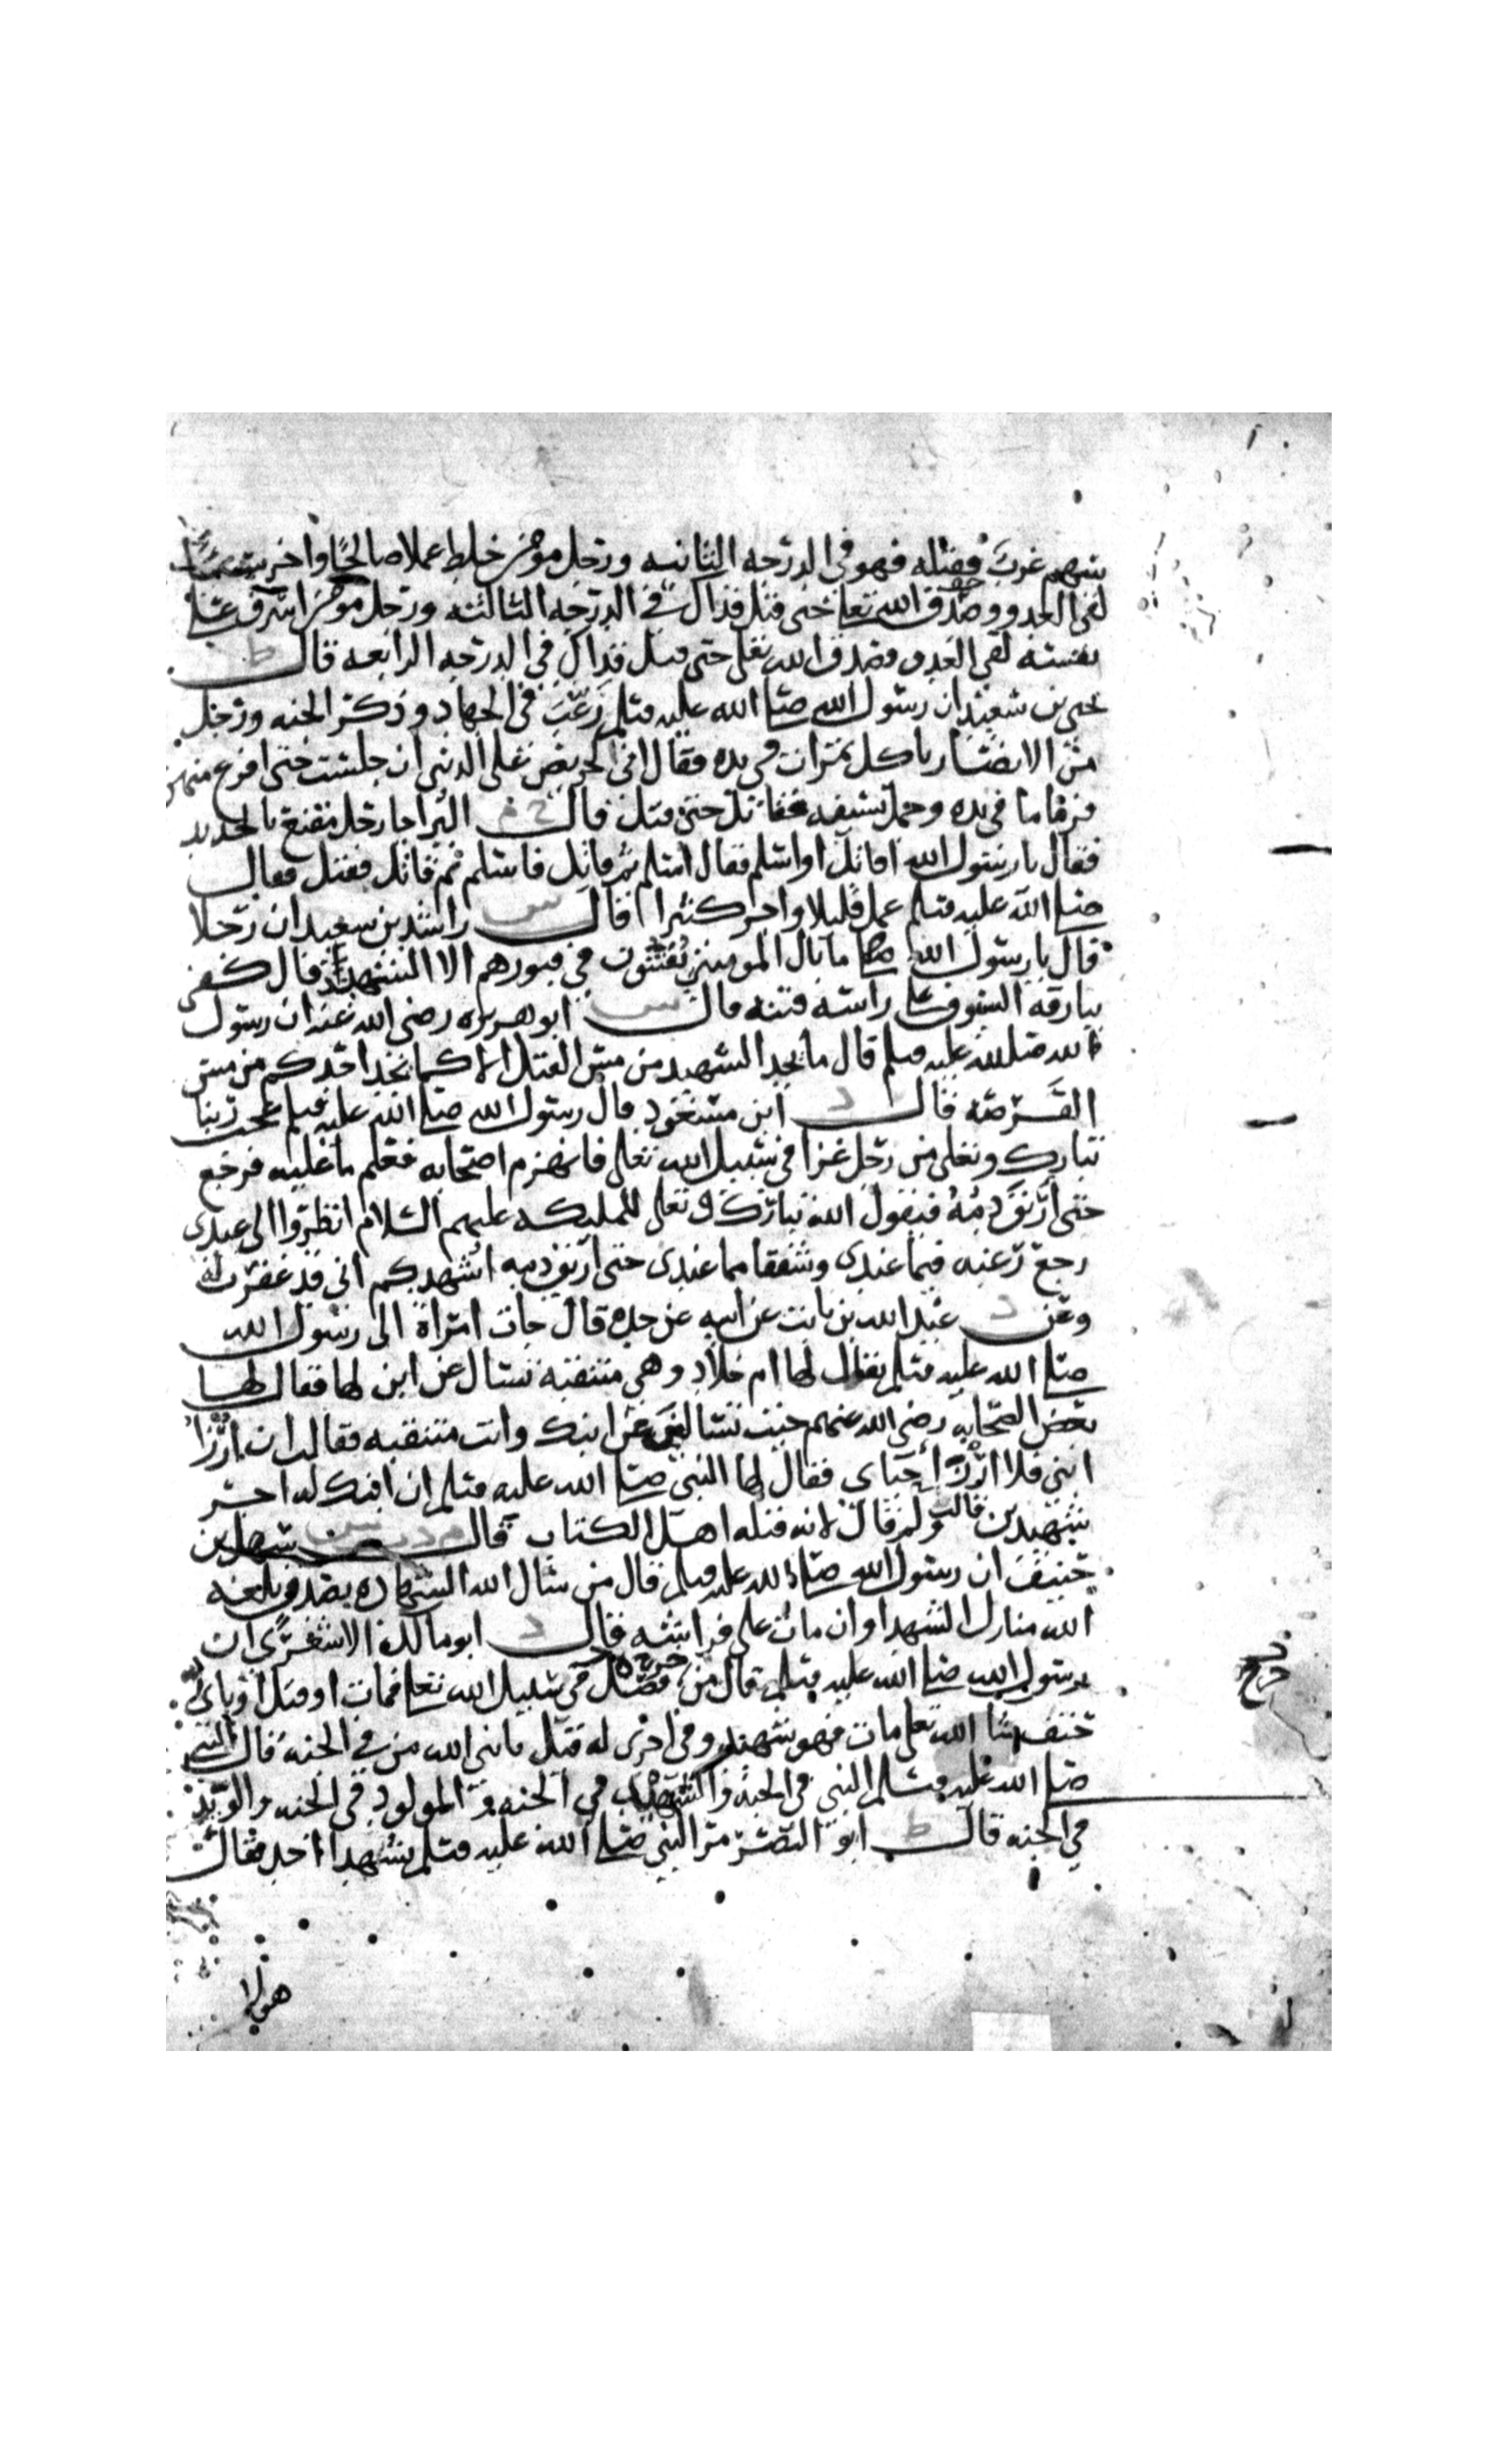 سهم غرب فقتله فهو في الدرجه الثانيه ورجل مومن خلط عملا صالحا واخر سيئا
لقى العدو وصدق الله تعلى حتى قتل فذاك في الدرجه الثالثه ورجل مومن اسرف على
نفسه لقى العدو فصدق الله تعلى حتى قتل فذاك في الدرجه الرابعه قال ط
يحيى بن سعيد ان رسول الله صلى الله عليه وسلم رغب في الجهاد وذكر الجنه ورجل
من الانصار ياكل تمرات في يده فقال اني لحريص على الدنيا ان جلست حتى افرغ منهن
فرما ما في يده وحمل بسيفه فقاتل حتى قتل قال خ م البرا جا رجل مقنع بالحديد
فقال يا رسول الله اقاتل او اسلم فقال اسلم ثم قاتل فاسلم ثم قاتل فقتل فقال
صلى الله عليه وسلم عمل قليلا واجر كثيرا قال س راشد بن سعيد ان رجلا
قال يا رسول الله ما بال المومنين يفتنون في قبورهم الا الشهيد قال كفى
ببارقه السيوف على راسه فتنه قال س ابو هريره رضى الله عنه ان رسول
الله صلى الله عليه وسلم قال ما يجد الشهيد من مس القتل الا كما يجد احدكم من مس
القرصه قال د ابن مسعود قال رسول الله صلى الله عليه وسلم عجب ربنا
تبارك وتعلى من رجل غزا في سبيل الله تعلى فانهزم اصحابه فعلم ما عليه فرجع
حتى اريق دمه فيقول الله تبارك وتعلى للمليكه عليهم السلام انظروا الى عبدى
رجع رغبه فيما عندى وشفقا مما عندى حتى اريق دمه اشهدكم اني قد غفرت له
وعن د عبد الله بن ثابت عن ابيه عن جده قال جات امراة الى رسول الله
صلى الله عليه وسلم يقال لها ام خلاد وهي متنقبه تسال عن ابن لها فقال لها
بعض الصحابه رضى الله عنهم جيت تسالين عن ابنك وانت متنقبه فقالت ان ارزا
ابني فلا ارزا حياى فقال لها النبي صلى الله عليه وسلم ان ابنك له اجر
شهيدين قالت ولم قال لانه قتله اهل الكتاب قال م د س سهل بن
حنيف ان رسول الله صلى الله عليه وسلم قال من سال الله الشهاده بصدق بلغه
الله منازل الشهدا وان مات على فراشه قال د ابو مالك الاشعرى ان
رسول الله صلى الله عليه وسلم قال من فصل في سبيل الله تعلى فمات او قتل او باى
حتف شا الله تعلى مات فهو شهيد وفي اخرى له قيل يا نبي الله من في الجنه قال النبي
صلى الله عليه وسلم النبي في الجنه والشهيد في الجنه والمولود في الجنه والوييد
في الجنه قال ط ابو النضر مر النبي صلى الله عليه وسلم بشهدا احد فقال
هولا